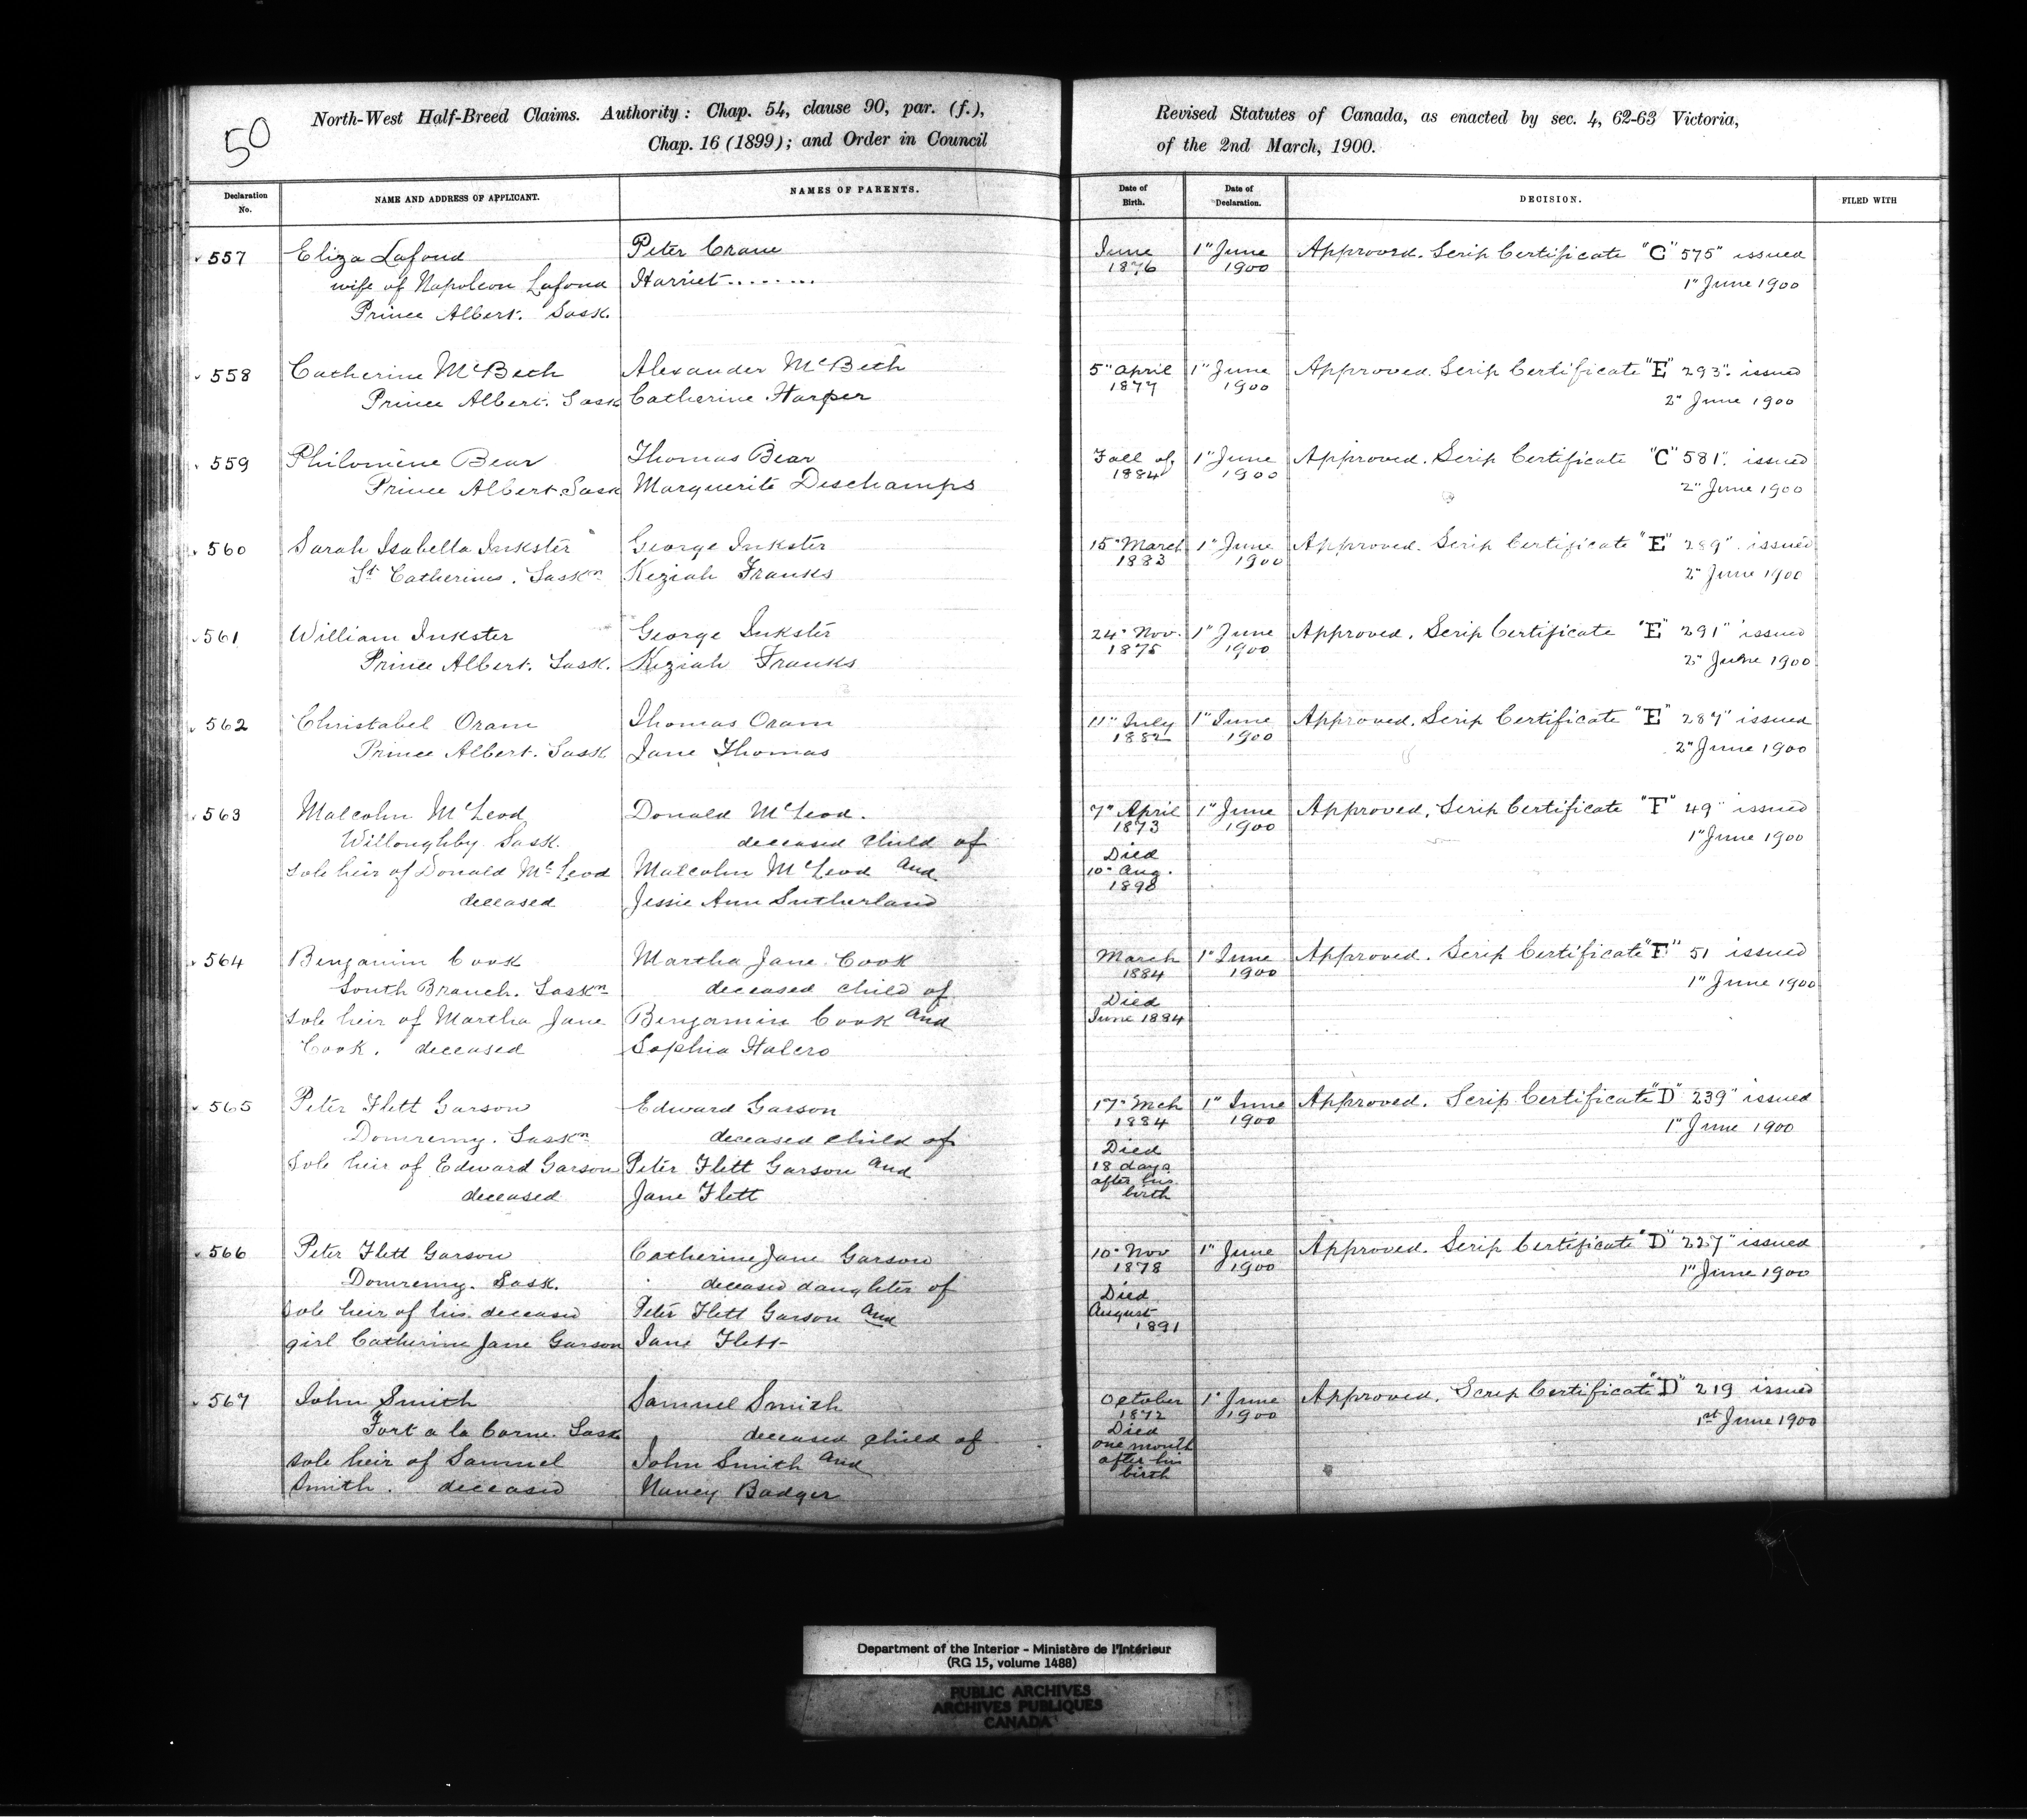 50
North-West Half-Breed Claims. Authority: Chap. 54, clause 90, par. (f.),
Chap. 16 (1899); and Order in Council
Revised Statutes of Canada, as enacted by sec. 4, 62-63 Victoria,
of the 2nd March, 1900.
Declaration No.
NAME AND ADDRESS OF APPLICANT.
NAMES OF PARENTS.
Date of Birth.
Date of Declaration.
DECISION.
FILED WITH
557 Eliza Lafond Peter Crane June 1" June Approved. Scrip Certificate "C" 575" issued
wife of Napoleon Lafond Harriet........ 1876 1900 1" June 1900
Prince Albert. Sask.
558 Catherine McBeth Alexander McBeth 5" April 1" June Approved. Scrip Certificate "E" 293". issued
Prince Albert. Sask Catherine Harper 1877 1900 2" June 1900
559 Philomène Bear Thomas Bear Fall of 1" June Approved. Scrip Certificate "C" 581". issued
Prince Albert. Sask Marguerite Deschamps 1884 1900 2" June 1900
560 Sarah Isabella Inkster George Inkster 15" March 1" June Approved. Scrip Certificate "E" 289". issued
St Catherines. Saskn Keziah Franks 1883 1900 2" June 1900
561 William Inkster George Inkster 24" Nov. 1" June Approved. Scrip Certificate "E" 291" issued
Prince Albert. Sask. Keziah Franks 1875 1900 2" June 1900
562 Christabel Oram Thomas Oram 11" July 1" June Approved. Scrip Certificate "E" 287" issued
Prince Albert. Sask Jane Thomas 1882 1900 2" June 1900
563 Malcolm McLeod Donald McLeod. 7" April 1" June Approved. Scrip Certificate "F" 49" issued
Willoughby. Sask. deceased child of 1873 1900 1" June 1900
sole heir of Donald McLeod Malcolm McLeod and Died 10" Aug.
deceased Jessie Ann Sutherland 1898
564 Benjamin Cook Martha Jane Cook March 1" June Approved. Scrip Certificate "F" 51 issued
South Branch. Saskn deceased child of 1884 1900 1" June 1900
sole heir of Martha Jane Benjamin Cook and Died June 1884
Cook. deceased Sophia Halcro
565 Peter Flett Garson Edward Garson 17" Mch 1" June Approved. Scrip Certificate "D" 239" issued
Domremy. Saskn deceased child of 1884 1900 1" June 1900
Sole heir of Edward Garson Peter Flett Garson and Died 18 days
deceased Jane Flett after his birth
566 Peter Flett Garson Catherine Jane Garson 10" Nov 1" June Approved. Scrip Certificate "D" 227" issued
Domremy. Sask. deceased daughter of 1878 1900 1" June 1900
sole heir of his deceased Peter Flett Garson and Died August
girl Catherine Jane Garson Jane Flett 1891
567 John Smith Samuel Smith October 1" June Approved. Scrip Certificate "D" 219 issued
Fort a la Corne. Sask deceased child of 1872 1900 1st June 1900
sole heir of Samuel John Smith and Died one month
Smith. deceased Nancy Badger after his birth
Department of the Interior - Ministère de l'Intérieur
(RG 15, volume 1488)
PUBLIC ARCHIVES
ARCHIVES PUBLIQUES
CANADA